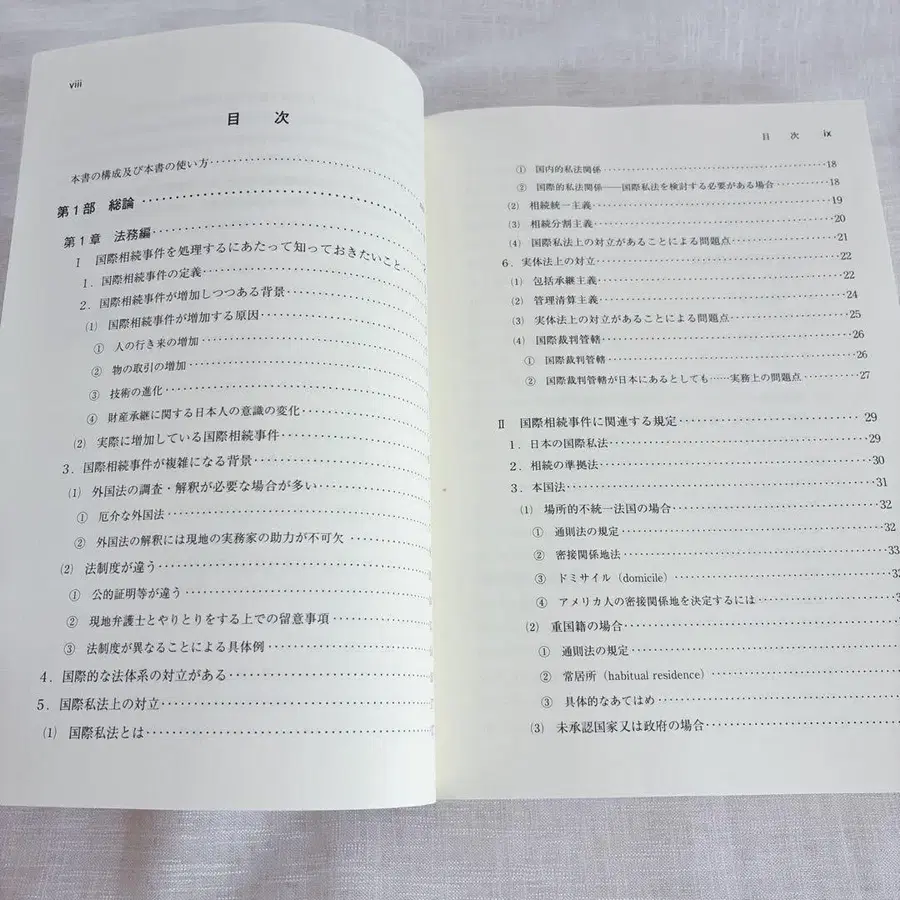 viii
目 次
本書の構成及び本書の使い方
第1部 総論
第1章 法務編
Ⅰ 国際相続事件を処理するにあたって知っておきたいこと
1. 国際相続事件の定義
2. 国際相続事件が増加しつつある背景
(1) 国際相続事件が増加する原因
① 人の行き来の増加
② 物の取引の増加
③ 技術の進化
④ 財産承継に関する日本人の意識の変化
(2) 実際に増加している国際相続事件
3. 国際相続事件が複雑になる背景
(1) 外国法の調査・解釈が必要な場合が多い
① 厄介な外国法
② 外国法の解釈には現地の実務家の助力が不可欠
(2) 法制度が違う
① 公的証明等が違う
② 現地弁護士とやりとりをする上での留意事項
③ 法制度が異なることによる具体例
4. 国際的な法体系の対立がある
5. 国際私法上の対立
(1) 国際私法とは
目 次 ix
① 国内的私法関係 18
② 国際的私法関係――国際私法を検討する必要がある場合 18
(2) 相続統一主義 19
(3) 相続分割主義 20
(4) 国際私法上の対立があることによる問題点 21
6. 実体法上の対立 22
(1) 包括承継主義 22
(2) 管理清算主義 24
(3) 実体法上の対立があることによる問題点 25
(4) 国際裁判管轄 26
① 国際裁判管轄 26
② 国際裁判管轄が日本にあるとしても……実務上の問題点 27
Ⅱ 国際相続事件に関連する規定 29
1. 日本の国際私法 29
2. 相続の準拠法 30
3. 本国法 31
(1) 場所的不統一法国の場合 32
① 通則法の規定 32
② 密接関係地法 33
③ ドミサイル（domicile）
④ アメリカ人の密接関係地を決定するには
(2) 重国籍の場合
① 通則法の規定
② 常居所（habitual residence）
③ 具体的なあてはめ
(3) 未承認国家又は政府の場合